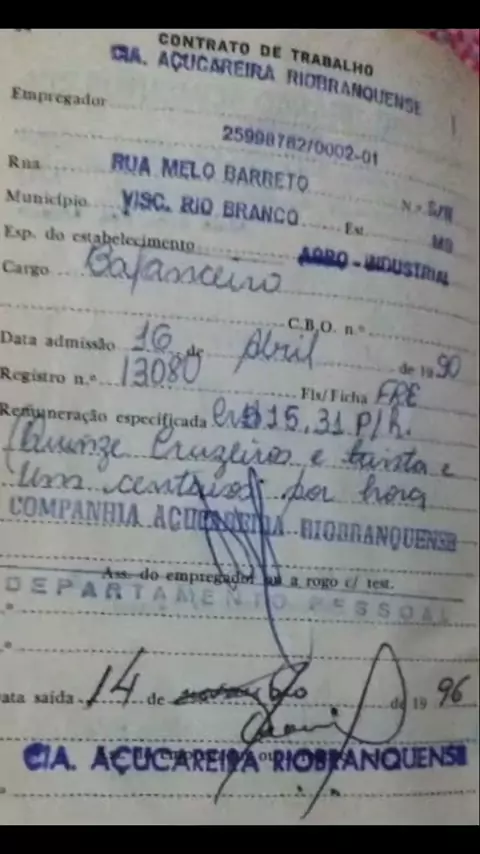 CONTRATO DE TRABALHO
CIA. AÇUCAREIRA RIOBRANQUENSE
Empregador
25998782/0002-01
Rua RUA MELO BARRETO N.º S/N
Município VISC. RIO BRANCO Est. MG
Esp. do estabelecimento AGRO - INDUSTRIAL
Cargo Balanceiro
C.B.O. n.º
Data admissão 16 de Abril de 1990
Registro n.º 13080 Fls/Ficha FRE
Remuneração especificada Cr$ 15,31 P/h.
(Quinze Cruzeiros e trinta e
um centavos por hora
COMPANHIA AÇUCAREIRA RIOBRANQUENSE
Ass. do empregador ou a rogo c/ test.
DEPARTAMENTO PESSOAL
ata saída 14 de de 19 96
CIA. AÇUCAREIRA RIOBRANQUENSE